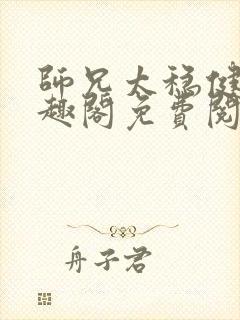 師兄太穩健
趣閣免費閱
舟子君